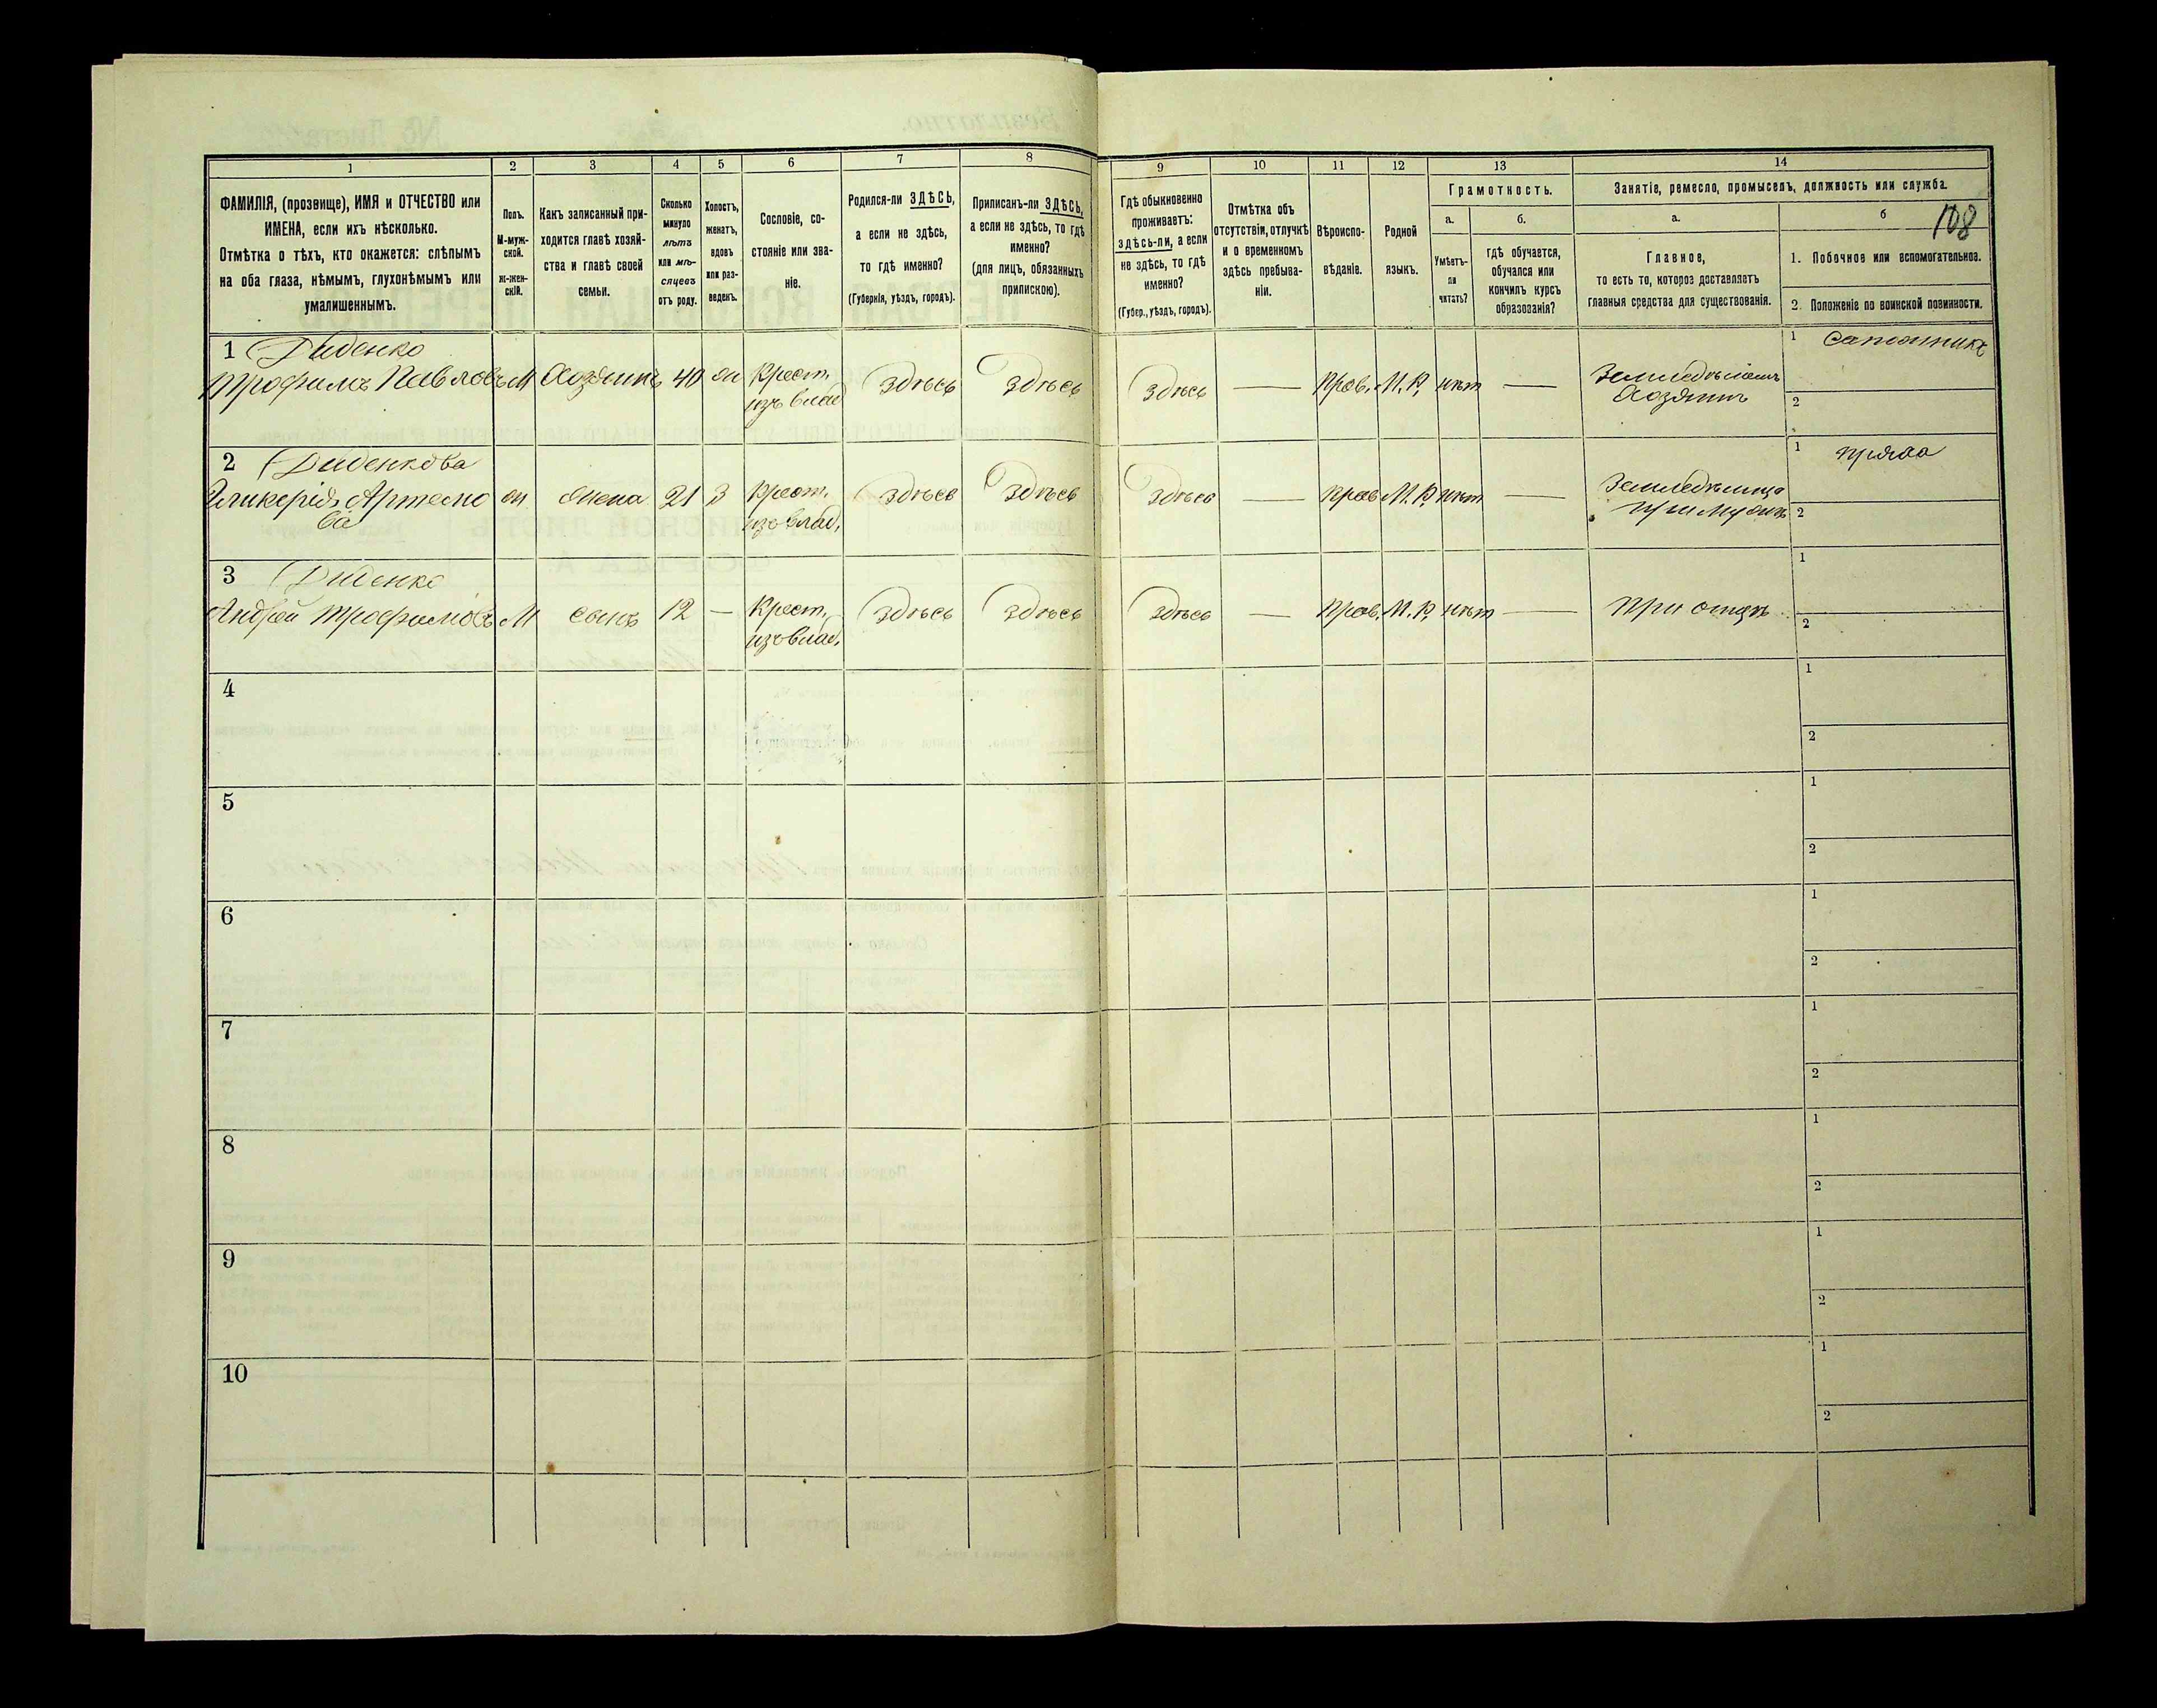 1 2 3 4 5 6 7 8 9 10 11 12 13 14
ФАМИЛІЯ, (прозвище), ИМЯ и ОТЧЕСТВО или
ИМЕНА, если ихъ нѣсколько.
Отмѣтка о тѣхъ, кто окажется: слѣпымъ
на оба глаза, нѣмымъ, глухонѣмымъ или
умалишеннымъ.
Полъ.
М-муж-
ской.
ж-жен-
скій.
Какъ записанный при-
ходится главѣ хозяй-
ства и главѣ своей
семьи.
Сколько
минуло
лѣтъ
или мѣ-
сяцевъ
отъ роду.
Холостъ,
женатъ,
вдовъ
или раз-
веденъ.
Сословіе, со-
стояніе или зва-
ніе.
Родился-ли ЗДѢСЬ,
а если не здѣсь,
то гдѣ именно?
(Губернія, уѣздъ, городъ).
Приписанъ-ли ЗДѢСЬ,
а если не здѣсь, то гдѣ
именно?
(для лицъ, обязанныхъ
припискою).
Гдѣ обыкновенно
проживаетъ:
здѣсь-ли, а если
не здѣсь, то гдѣ
именно?
(Губер., уѣздъ, городъ).
Отмѣтка объ
отсутствіи, отлучкѣ
и о временномъ
здѣсь пребыва-
ніи.
Вѣроиспо-
вѣданіе.
Родной
языкъ.
Грамотность.
а.
Умѣетъ-
ли
читать?
б.
гдѣ обучается,
обучался или
кончилъ курсъ
образованія?
Занятіе, ремесло, промыселъ, должность или служба.
а.
Главное,
то есть то, которое доставляетъ
главныя средства для существованія.
б
108
1. Побочное или вспомогательное.
2. Положеніе по воинской повинности.
1 Диденко
Трофимъ Павловъ М Хозяинъ 40 ж Крест. Здѣсь Здѣсь Здѣсь — Прав. М.Р. нѣт — Хозяинъ
изъ влад
1 сапожникъ
2
2 Диденкова
Гликерія Артемо ж жена 21 З Крест. Здѣсь Здѣсь Здѣсь — Прав. М.Р. нѣт — при мужѣ
ва изъ влад.
1 пряха
2
3 Диденко
Андрей Трофимовъ М сынъ 12 — Крест. Здѣсь Здѣсь Здѣсь — Прав. М.Р. нѣт — при отцѣ
изъ влад.
1
2
4
1
2
5
1
2
6
1
2
7
1
2
8
1
2
9
1
2
10
1
2